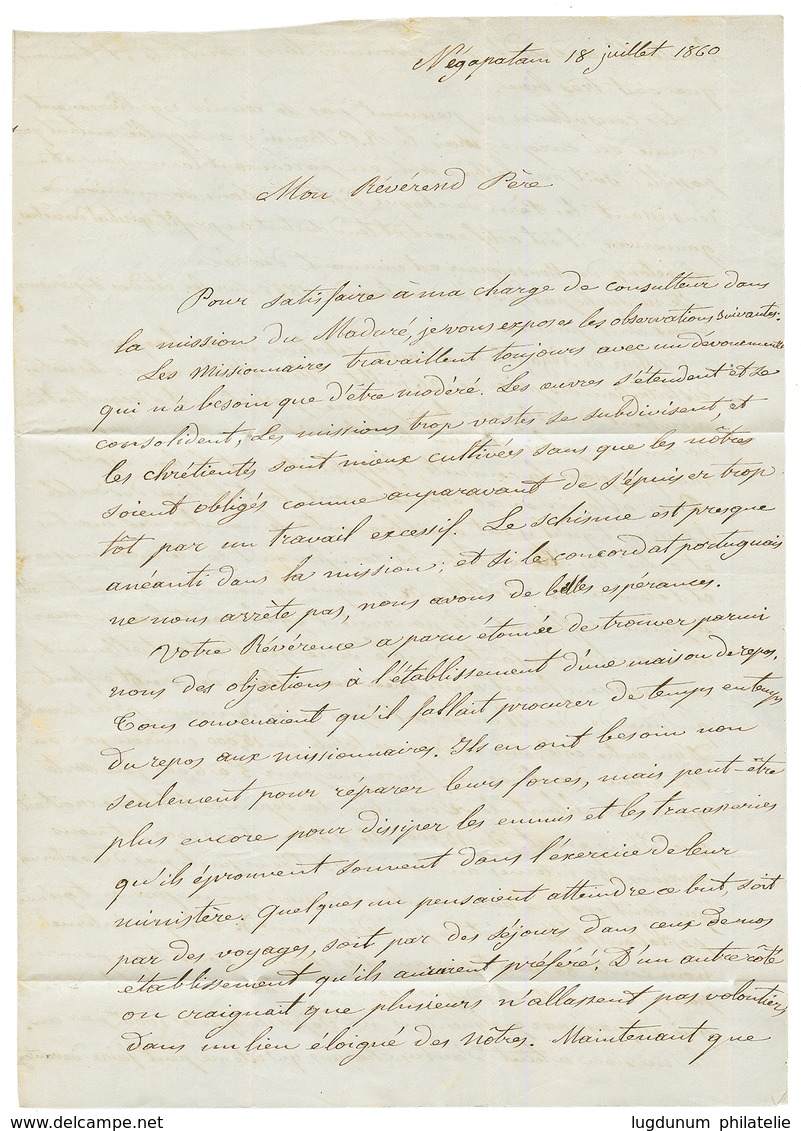 Négapatam 18 juillet 1860
Mon Révérend Père
Pour satisfaire à ma charge de consulteur dans
la mission du Maduré, je vous expose les observations suivantes.
Les Missionnaires travaillent toujours avec un dévouement
qui n'a besoin que d'être modéré. Les œuvres s'étendent et se
consolident, Les missions trop vastes se subdivisent, et
les chrétientés sont mieux cultivées sans que les nôtres
soient obligés comme auparavant de s'épuiser trop
tôt par un travail excessif. Le schisme est presque
anéanti dans la mission; et si le concordat portuguais
ne nous arrête pas, nous avons de belles espérances.
Votre Révérence a paru étonnée de trouver parmi
nous des objections à l'établissement d'une maison de repos.
Tous convenaient qu'il fallait procurer de temps en temps
du repos aux missionnaires. Ils en ont besoin non
seulement pour réparer leurs forces, mais peut-être
plus encore pour dissiper les ennuis et les tracasseries
qu'ils éprouvent souvent dans l'exercice de leur
ministère. Quelques un pensaient atteindre ce but, soit
par des voyages, soit par des séjours dans ceux de nos
établissement qu'ils auraient préféré. D'un autre côté
on craignait que plusieurs n'allassent pas volontiers
dans un lieu éloigné des nôtres. Maintenant que
www.delcampe.net
lugdunum philatelie